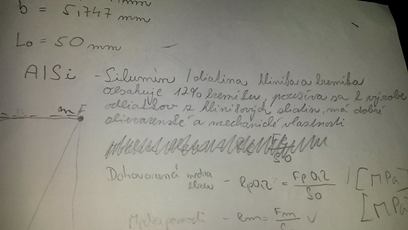 b = 5,747 mm
L₀ = 50 mm
AlSi - Silumin / zliatina hliníka a kremíka
obsahuje 12% kremíku, používa sa k výrobe
odliatkov z hliníkových zliatin, má dobré
zlievarenské a mechanické vlastnosti
F
Dohovorená medza klzu - Rp0,2 = Fp0,2 / S0 [MPa]
Medza pevnosti - Rm = Fm [MPa]